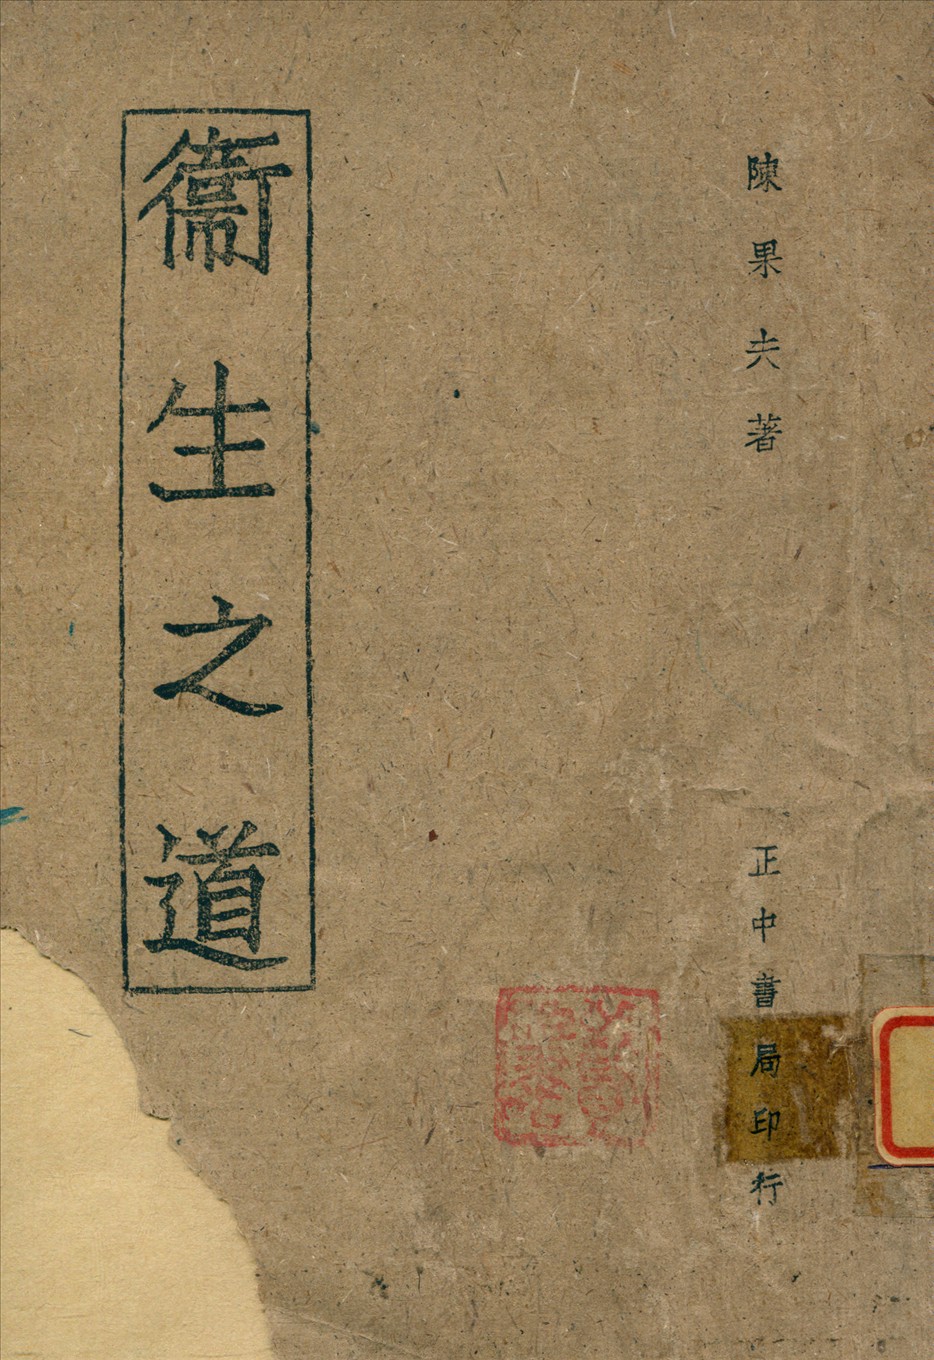 陳果夫著
衞生之道
正中書局印行